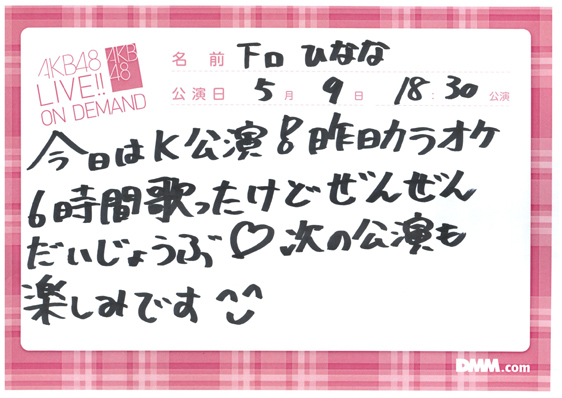 AKB48
LIVE!!
ON DEMAND
AKB
48
名前 下口 ひなな
公演日 5月 9日 18:30 公演
今日はK公演!昨日カラオケ
6時間歌ったけどぜんぜん
だいじょうぶ♡次の公演も
楽しみです ^^
DMM.com